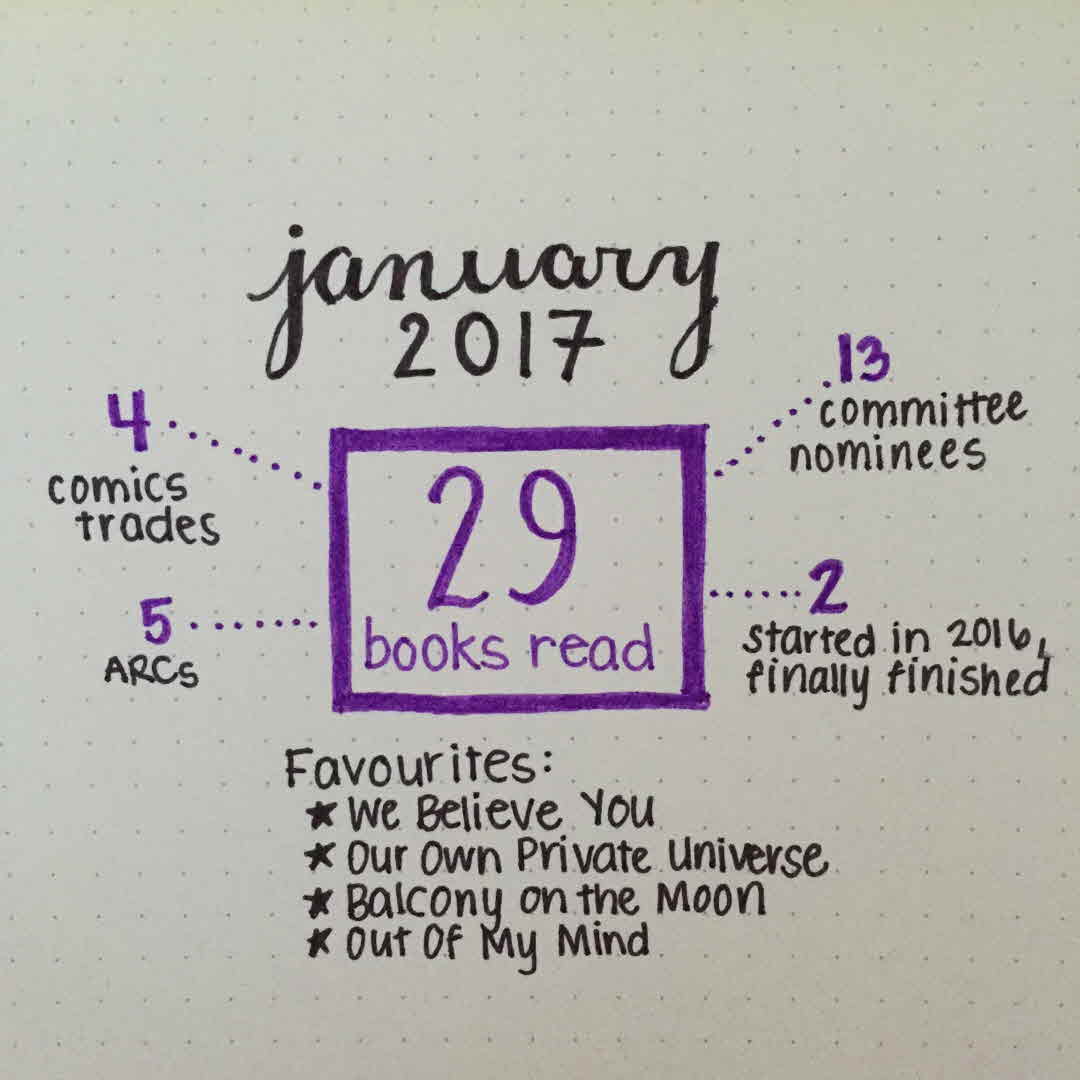 january
2017
4
comics
trades
13
committee
nominees
29
books read
5
ARCs
2
started in 2016,
finally finished
Favourites:
★ We Believe You
★ Our Own Private Universe
★ Balcony on the Moon
★ Out Of My Mind